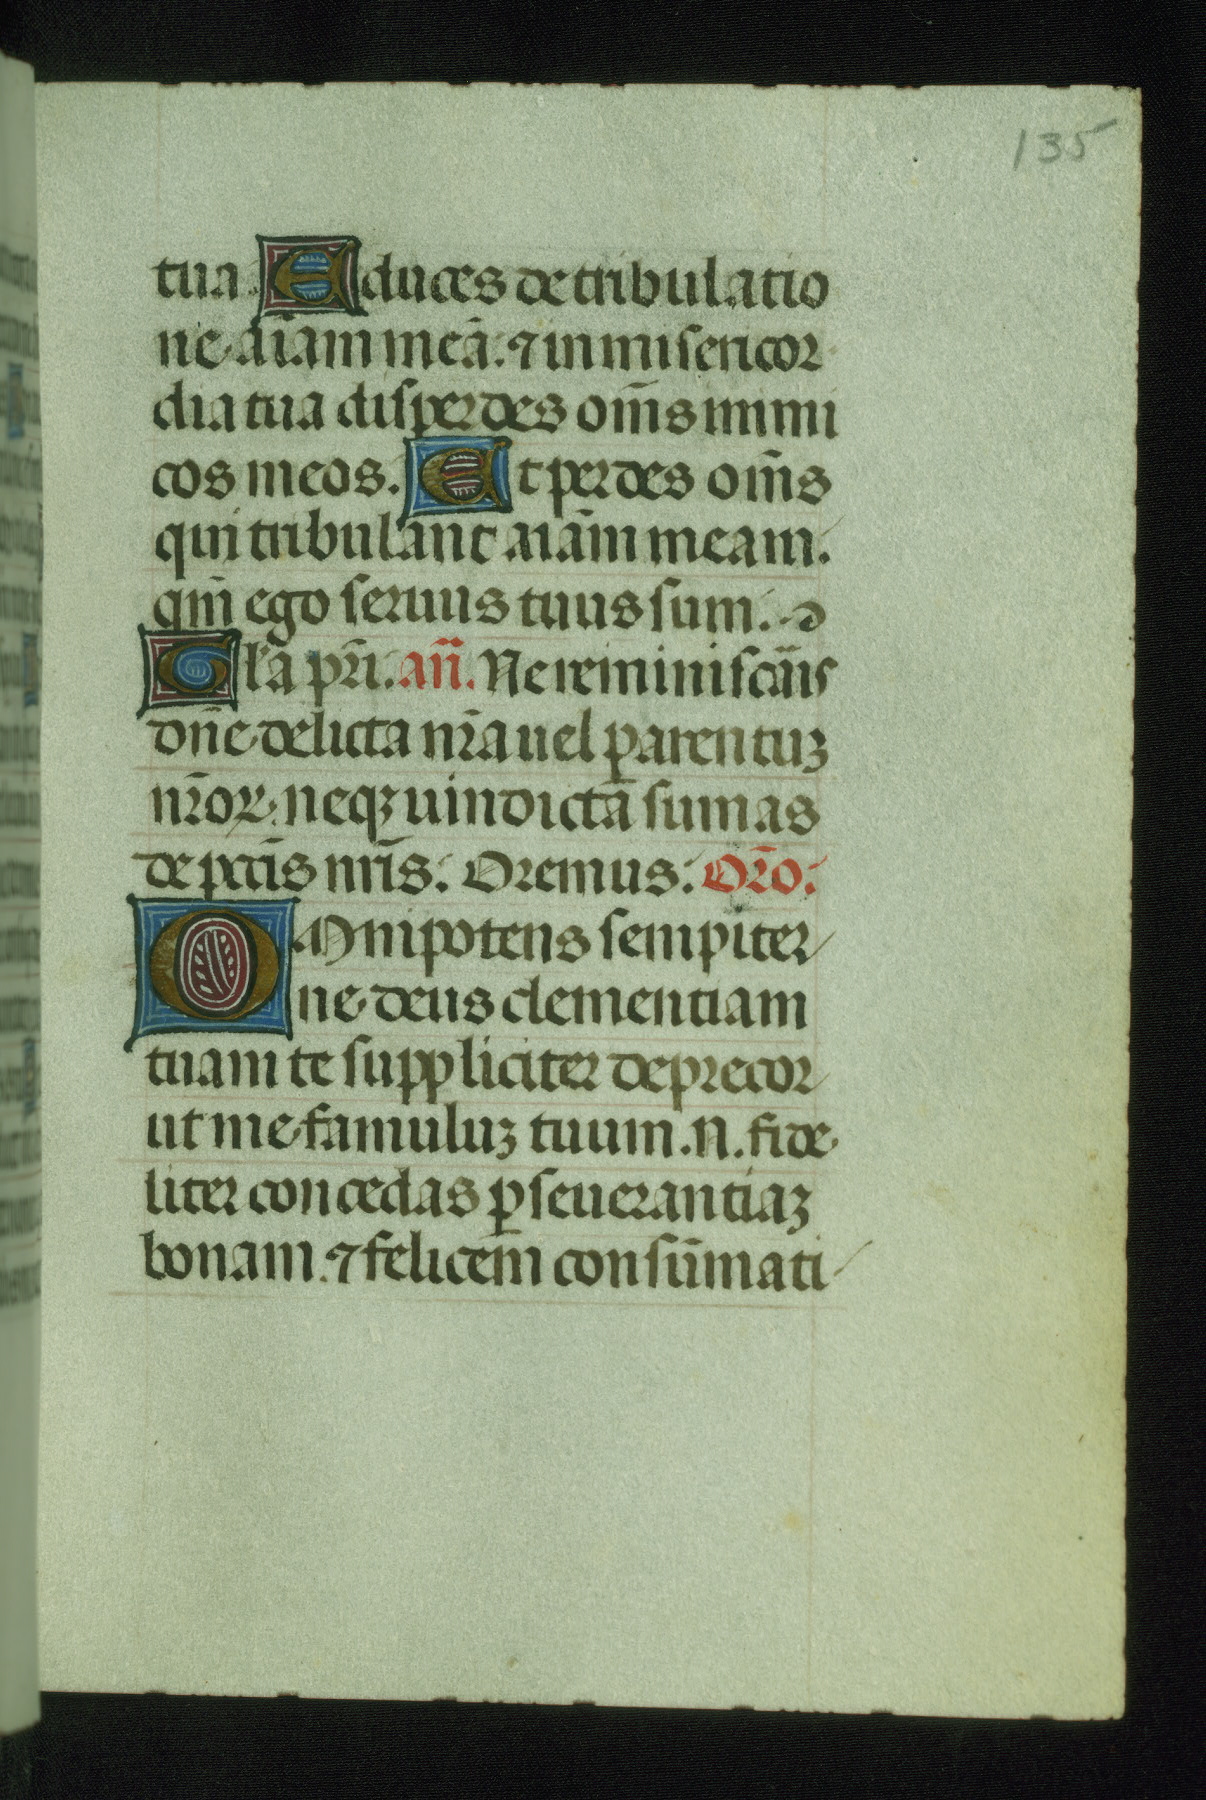 135
tua. Educes de tribulatio
ne aīam meā: ⁊ in miſericor
dia tua diſperdes om̄s inimi
cos meos. Et perdes om̄s
qui tribulant aīam meam.
qm̄ ego ſeruus tuus ſum.
Gl̄a pr̄i. an̄. Ne reminiſcar̄is
dn̄e delicta nr̄a uel parentuꝫ
nr̄oꝝ. neqꝫ uindictā ſumas
de pctīs nr̄is: Oremus: Or̄o:
Omnipotens ſempiter
ne deus clementiam
tuam te ſuppliciter deprecor
ut me famuluꝫ tuum .N. fide
liter concedas ꝑſeuerantiaꝫ
bonam. ⁊ felicem conſūmati